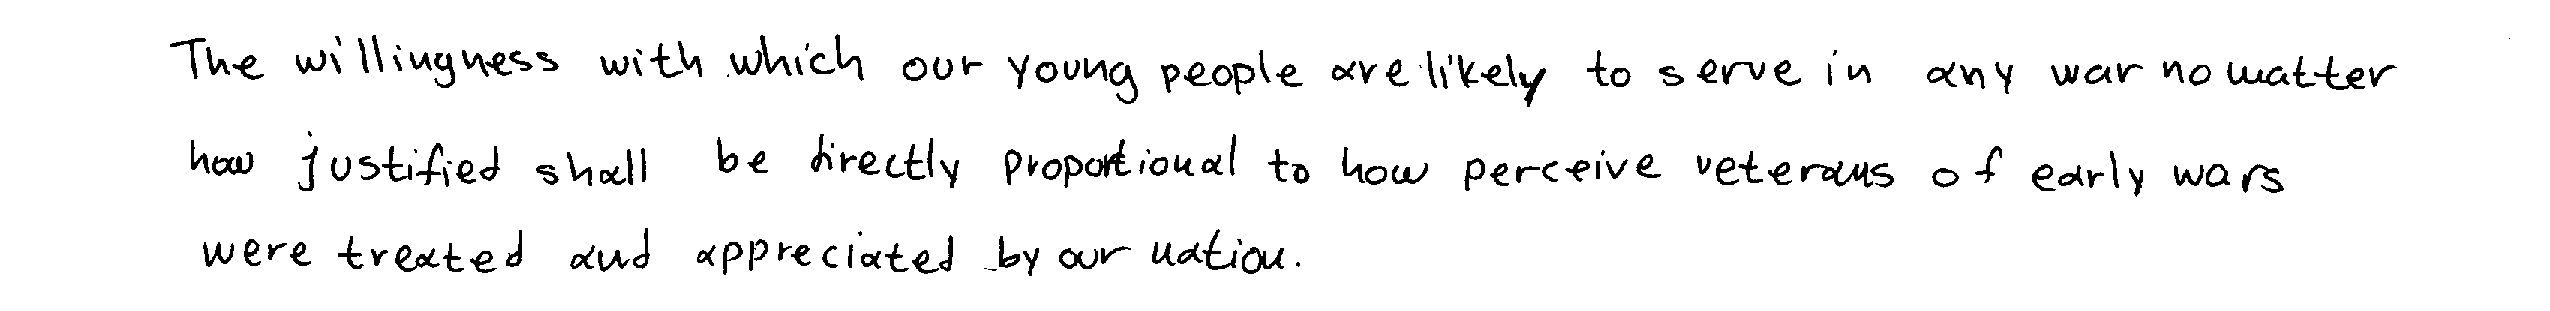 The willingness with which our young people are likely to serve in any war no matter
how justified shall be directly proportional to how perceive veterans of early wars
were treated and appreciated by our nation.